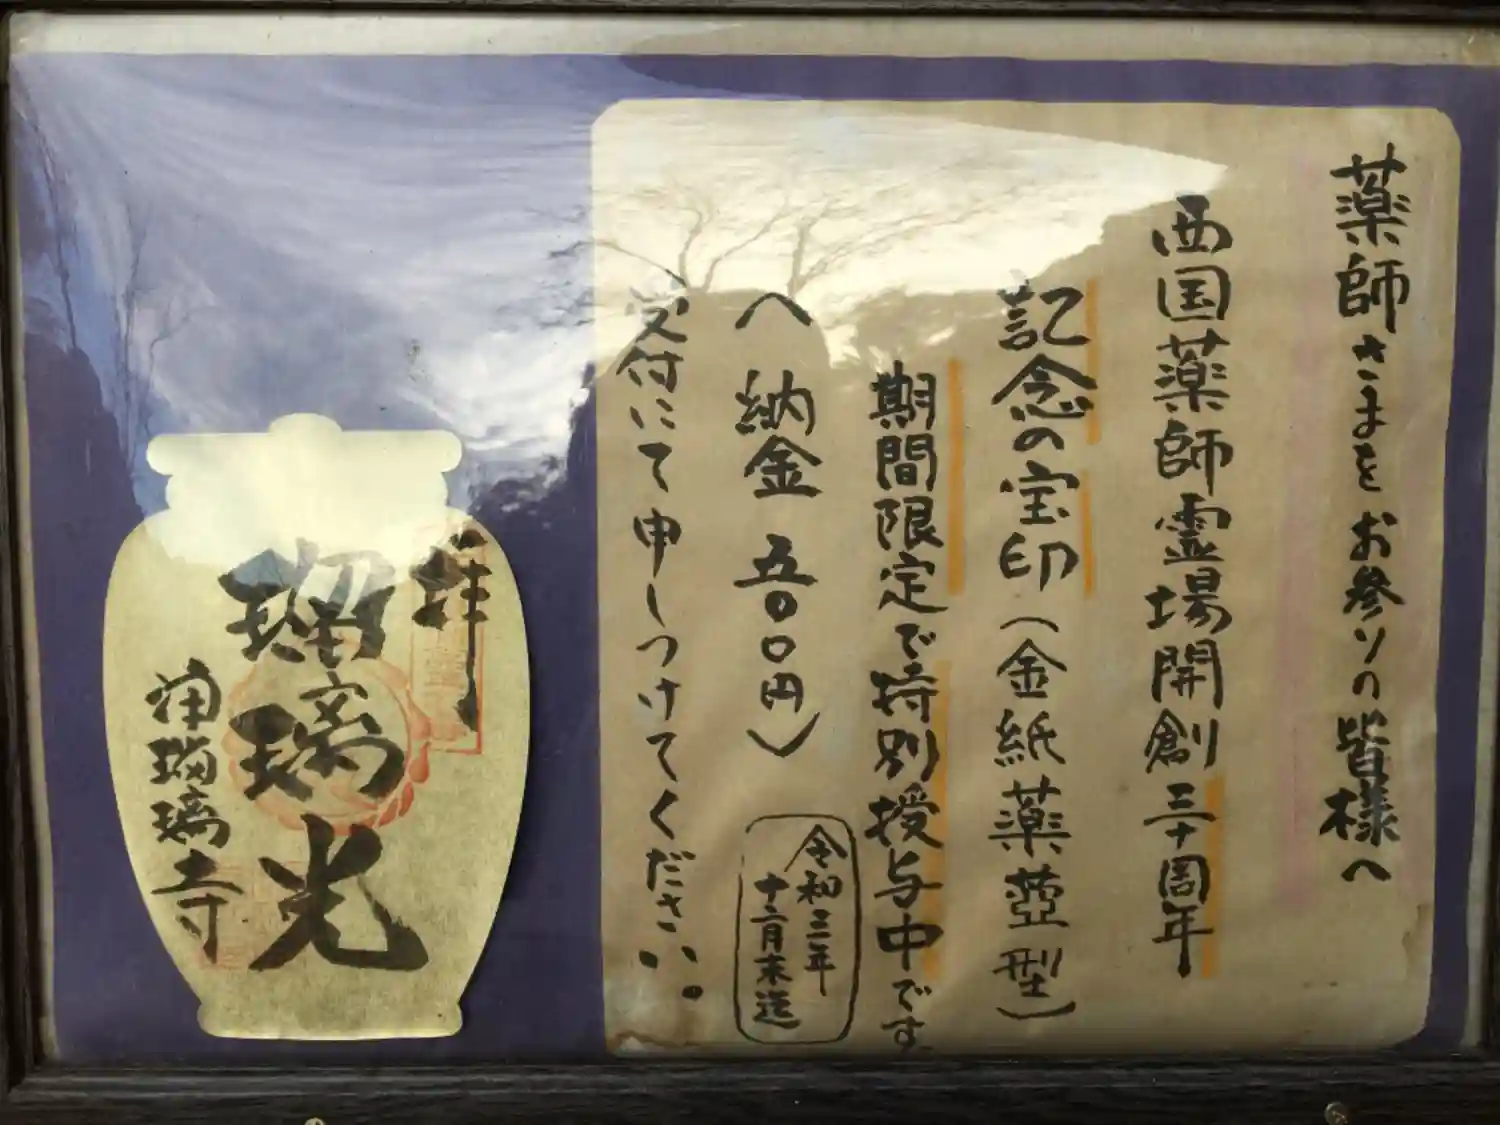 薬師さまをお参りの皆様へ
西国薬師霊場開創三十周年
記念の宝印(金紙薬壺型)
期間限定で特別授与中です
へ納金 五〇〇円)
令和三年
十二月末迄
受付にて申しつけてください。
拝
瑠璃光
浄瑠璃寺